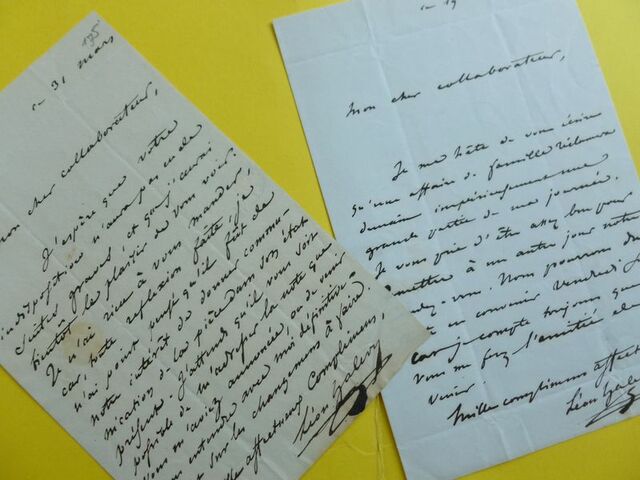 195
ce 31 mars
mon cher collaborateur,
J'espère que votre
indisposition n'aura pas eu de
suites graves, et que j'aurai
bientôt le plaisir de vous voir.
Je n'ai rien à vous mander,
car, toute reflexion faite, je
n'ai point pensé qu'il fût de
notre intérêt de donner commu-
nication de la pièce dans son état
présent. J'attends qu'il vous soit
possible de m'adresser la note que
vous m'aviez annoncée, ou de venir
entendre avec moi définitive-
sur les changemens à faire
affectueux complimens,
Léon Halévy
ce 19
Mon cher collaborateur,
Je me hâte de vous écrire
qu'une affaire de famille réclamera
demain impérieusement une
grande partie de ma journée.
Je vous prie d'être assez bon pour
remettre à un autre jour notre
rendez-vous. Nous pourrons
en convenir Vendredi
car je compte toujours que
vous me ferez l'amitié de
venir.
Mille complimens affect
Léon Halé